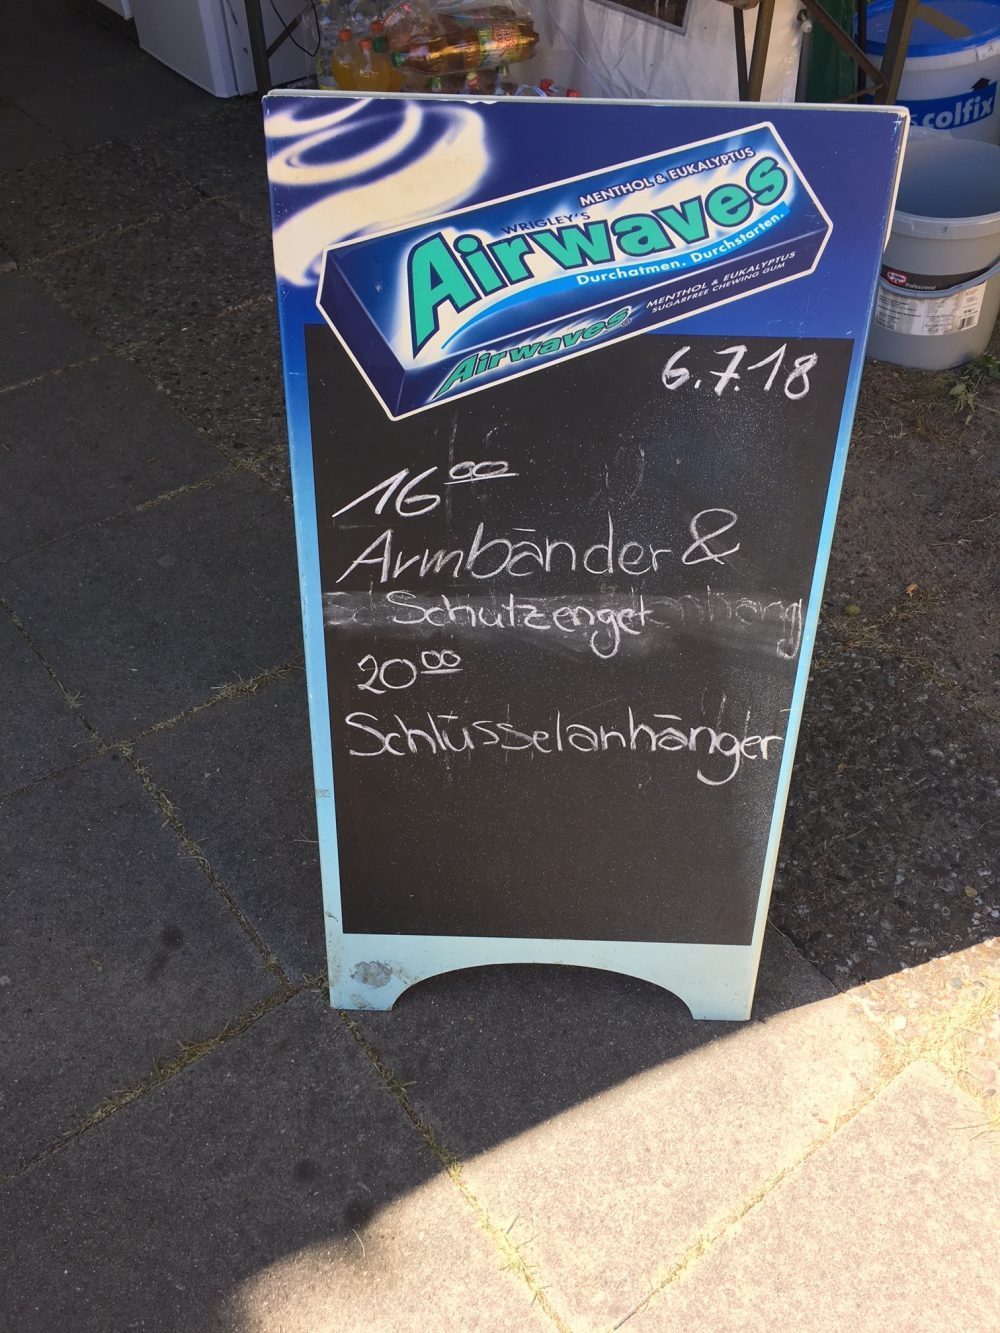 colfix
MENTHOL & EUKALYPTUS
WRIGLEY'S
Airwaves
Durchatmen. Durchstarten.
MENTHOL & EUKALYPTUS
SUGARFREE CHEWING GUM
Airwaves®
Professional
6.7.18
16 00
Armbänder &
Schutzengel
20 00
Schlüsselanhänger